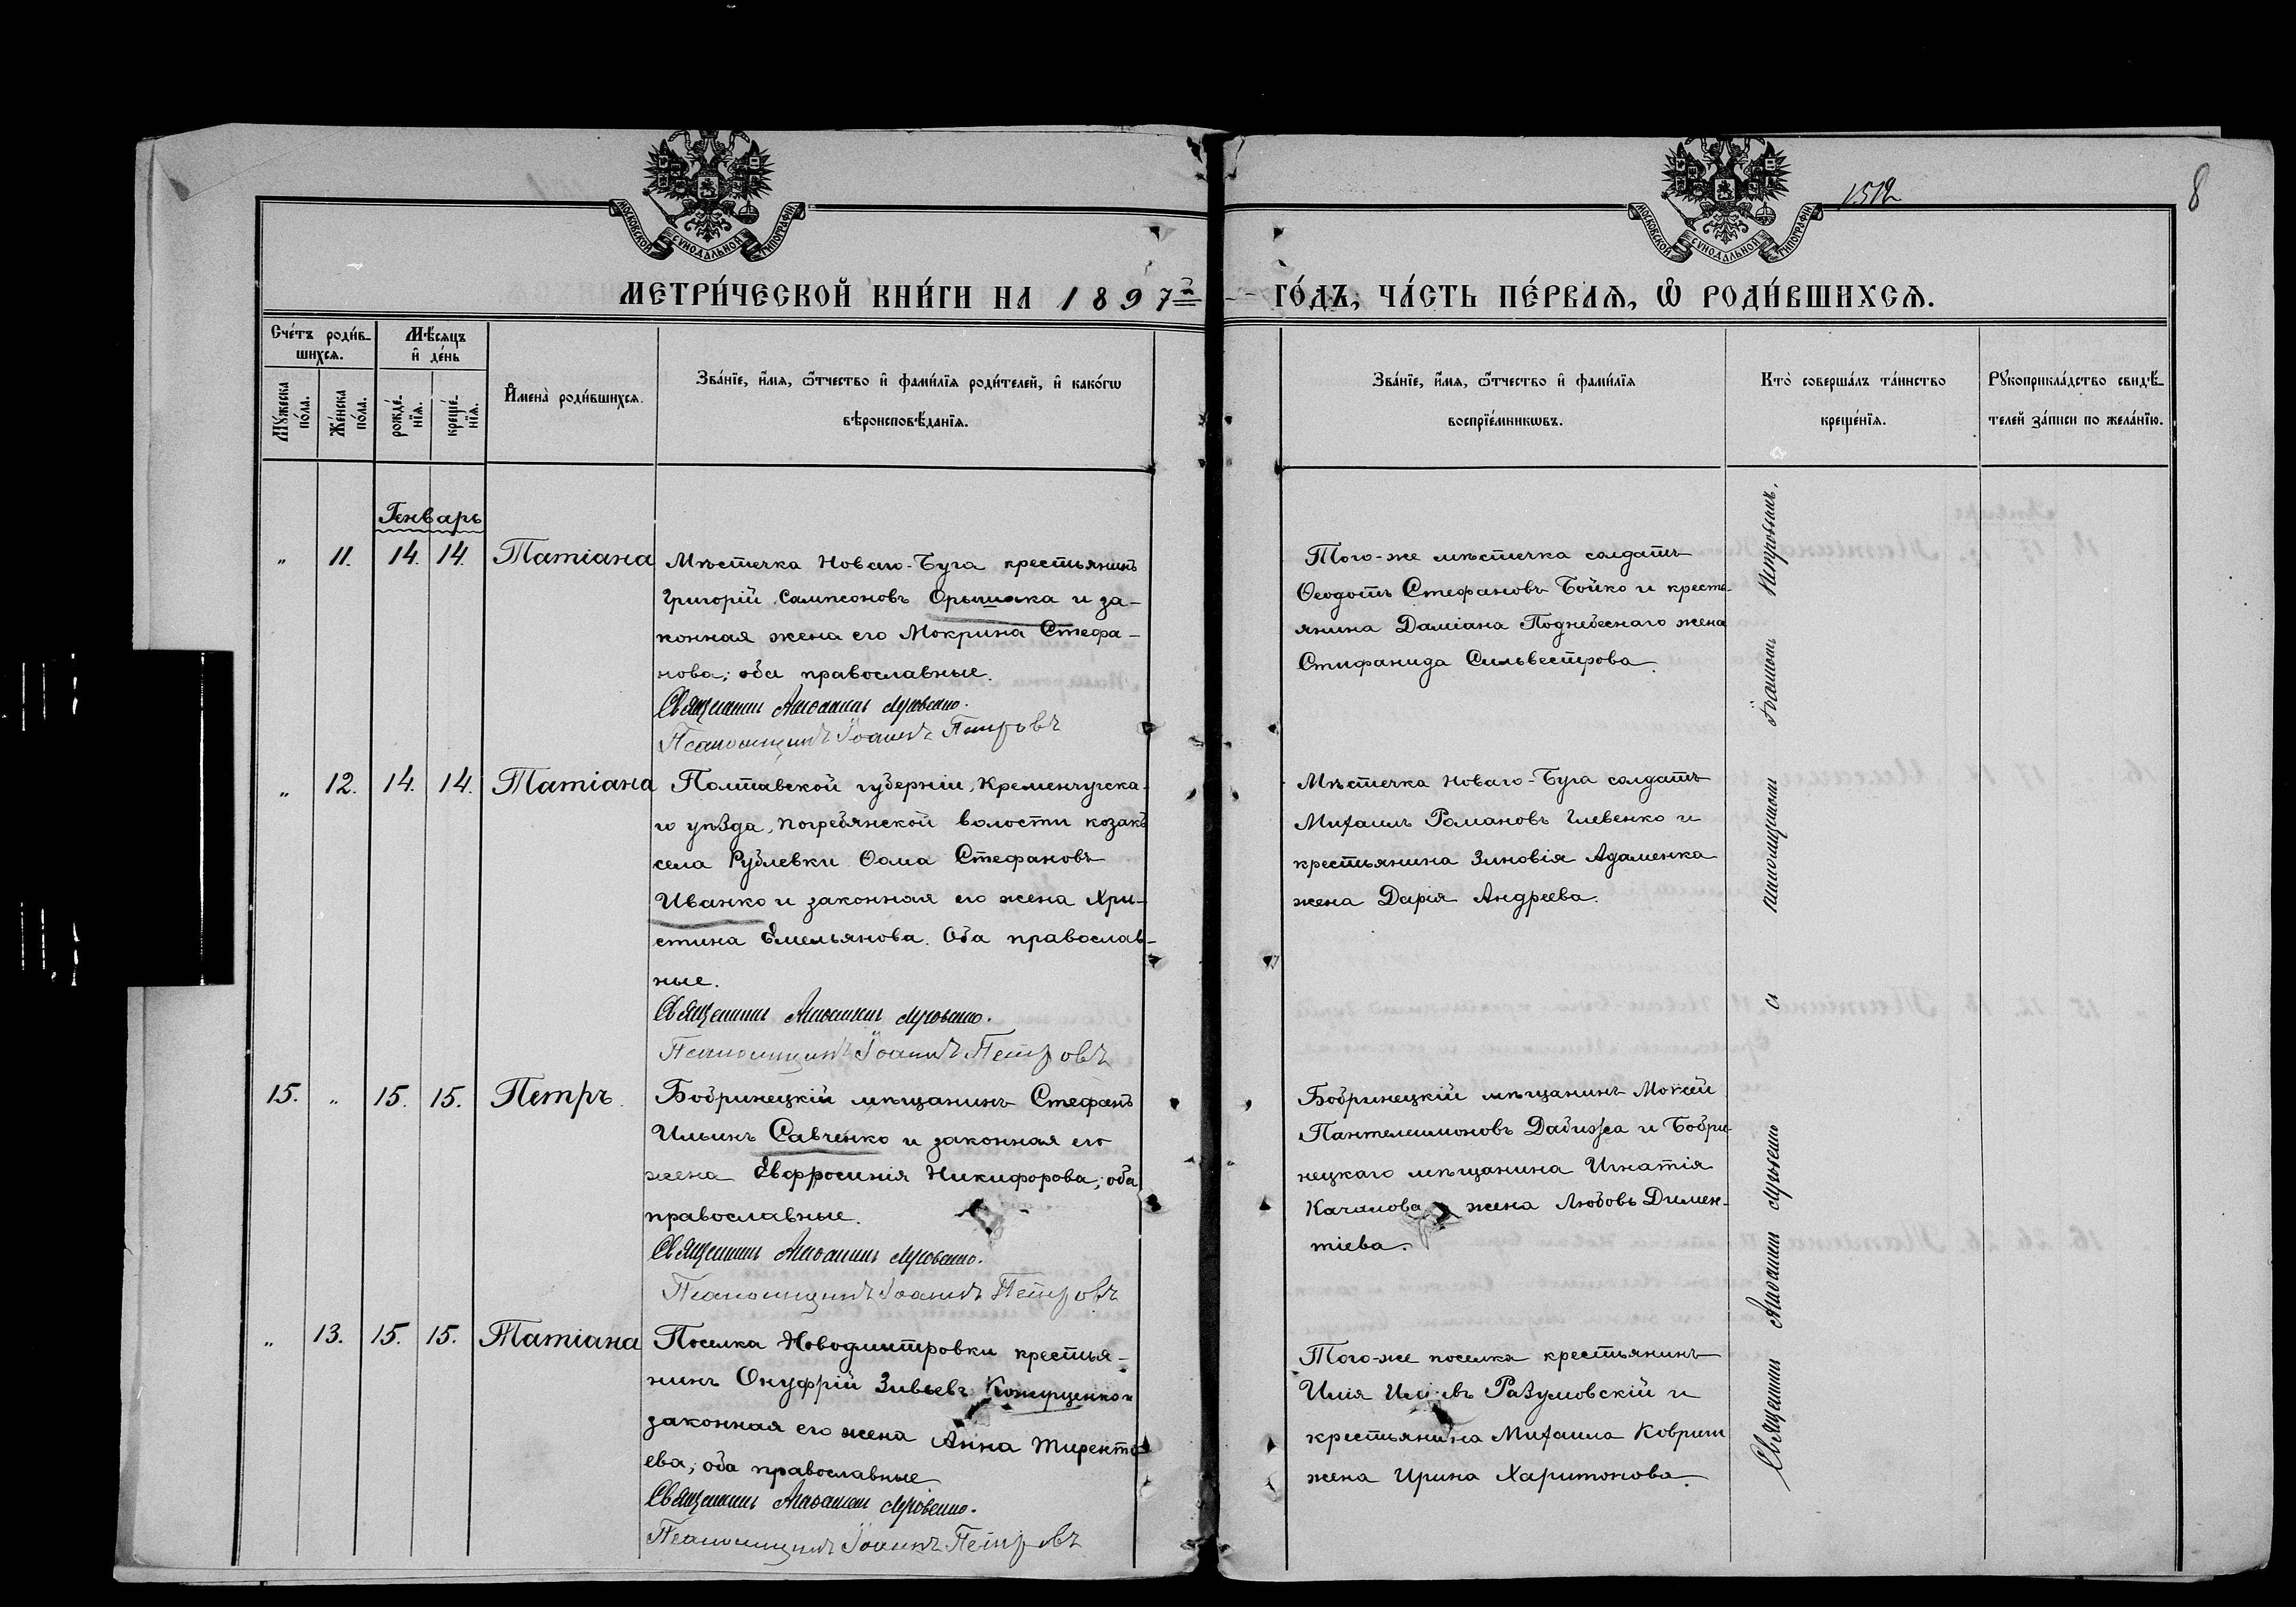 1512
8
МОСКОВСКОЙ СѴНОДАЛЬНОЙ ТИПОГРАФІИ
МОСКОВСКОЙ СѴНОДАЛЬНОЙ ТИПОГРАФІИ
МЕТРИ́ЧЕСКОЙ КНИ́ГИ НА 1897й ГО́ДЪ, ЧА́СТЬ ПЕ́РВАѦ, Ѡ РОДИ́ВШИХСѦ.
Сче́тъ роди́в-
шихсѧ.
Мꙋ́жеска по́ла.
Же́нска по́ла.
Мѣ́сѧцъ
и҆ де́нь
рожде́-нїѧ.
креще́-нїѧ.
И҆мена̀ роди́вшихсѧ.
Зва́нїе, и҆́мѧ, ѻ҆́тчество и҆ фами́лїѧ роди́телей, и҆ како́гѡ
вѣроисповѣ́данїѧ.
Зва́нїе, и҆́мѧ, ѻ҆́тчество и҆ фами́лїѧ
воспрїе́мникѡвъ.
Кто̀ соверша́лъ та́инство
креще́нїѧ.
Рꙋкоприкла́дство свидѣ́-
телей за́писи по жела́нїю.
Генварь
" 11. 14. 14. Татіана
Мѣстечка Новаго-Буга крестьянинъ
Григорій Сампсоновъ Орышака и за-
конная жена его Мокрина Стефа-
нова; оба православные.
Священникъ
Псаломщикъ Іоаннъ Петровъ
Того-же мѣстечка солдатъ
Ѳеодотъ Стефановъ Бойко и кресть-
янина Даміана Поднебеснаго жена
Стифанида Сильвестрова.
" 12. 14. 14. Татіана
Полтавской губерніи, Кременчугска-
го уѣзда, Погребянской волости козакъ
села Рублевки Ѳома Стефановъ
Иванко и законная его жена Хри-
стина Емельянова. Оба православ-
ные.
Священникъ
Псаломщикъ Іоаннъ Петровъ
Мѣстечка Новаго-Буга солдатъ
Михаилъ Романовъ Глевенко и
крестьянина Зиновія Адаменка
жена Дарія Андреева.
15. " 15. 15. Петръ.
Бобринецкій мѣщанинъ Стефанъ
Ильинъ Савченко и законная его
жена Евфросинія Никифорова; оба
православные.
Священникъ
Псаломщикъ Іоаннъ Петровъ
Бобринецкій мѣщанинъ Мокей
Пантелеимоновъ и Бобри-
нецкаго мѣщанина Игнатія
Качалова жена Любовь Димен-
тіева.
" 13. 15. 15. Татіана
Поселка Новодмитровки крестья-
нинъ Онуфрій Зивьевъ и
законная его жена Анна
ева; оба православные
Священникъ
Псаломщикъ Іоаннъ Петровъ
Того-же поселка крестьянинъ
Илія Разумовскій и
крестьянина Михаила
жена Ирина Харитонова.
Священникъ съ псаломщикомъ Іоанномъ Петровымъ.